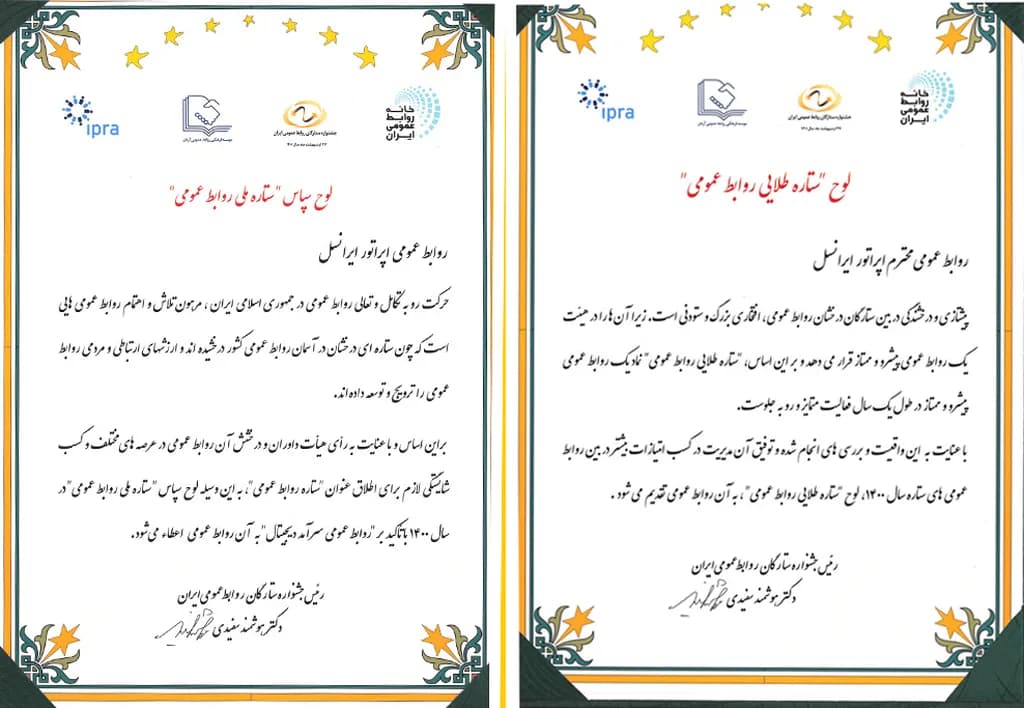 ipra
موسسه فرهنگی روابط عمومی آرمان
جشنواره ستارگان روابط عمومی ایران
خانه
روابط
عمومی
ایران
لوح سپاس "ستاره ملی روابط عمومی"
روابط عمومی اپراتور ایرانسل
حرکت رو به تکامل و تعالی روابط عمومی در جمهوری اسلامی ایران ، مرهون تلاش و اهتمام روابط عمومی هایی
است که چون ستاره ای درخشان در آسمان روابط عمومی کشور درخشیده اند و ارزشهای ارتباطی و مردمی روابط
عمومی را ترویج و توسعه داده اند.
براین اساس و با عنایت به رأی هیأت داوران و درخشش آن روابط عمومی در عرصه های مختلف و کسب
شایستگی لازم برای اطلاق عنوان "ستاره روابط عمومی"، به این وسیله لوح سپاس "ستاره ملی روابط عمومی" در
سال ۱۴۰۰ با تأکید بر "روابط عمومی سرآمد دیجیتال" به آن روابط عمومی اعطاء می‌شود.
رئیس جشنواره ستارگان روابط عمومی ایران
دکتر هوشمند سفیدی
ipra
موسسه فرهنگی روابط عمومی آرمان
جشنواره ستارگان روابط عمومی ایران
خانه
روابط
عمومی
ایران
لوح "ستاره طلایی روابط عمومی"
روابط عمومی محترم اپراتور ایرانسل
پیشتازی و درخشندگی در بین ستارگان درخشان روابط عمومی، افتخاری بزرگ و ستودنی است. زیرا آن ها را در هیئت
یک روابط عمومی پیشرو و ممتاز قرار می دهد و بر این اساس، "ستاره طلایی روابط عمومی" نماد یک روابط عمومی
پیشرو و ممتاز در طول یک سال فعالیت متمایز و رو به جلوست.
با عنایت به این واقعیت و بررسی های انجام شده و توفیق آن مدیریت در کسب امتیازات بیشتر در بین روابط
عمومی های ستاره سال ۱۴۰۰، لوح "ستاره طلایی روابط عمومی"، به آن روابط عمومی تقدیم می شود .
رئیس جشنواره ستارگان روابط عمومی ایران
دکتر هوشمند سفیدی